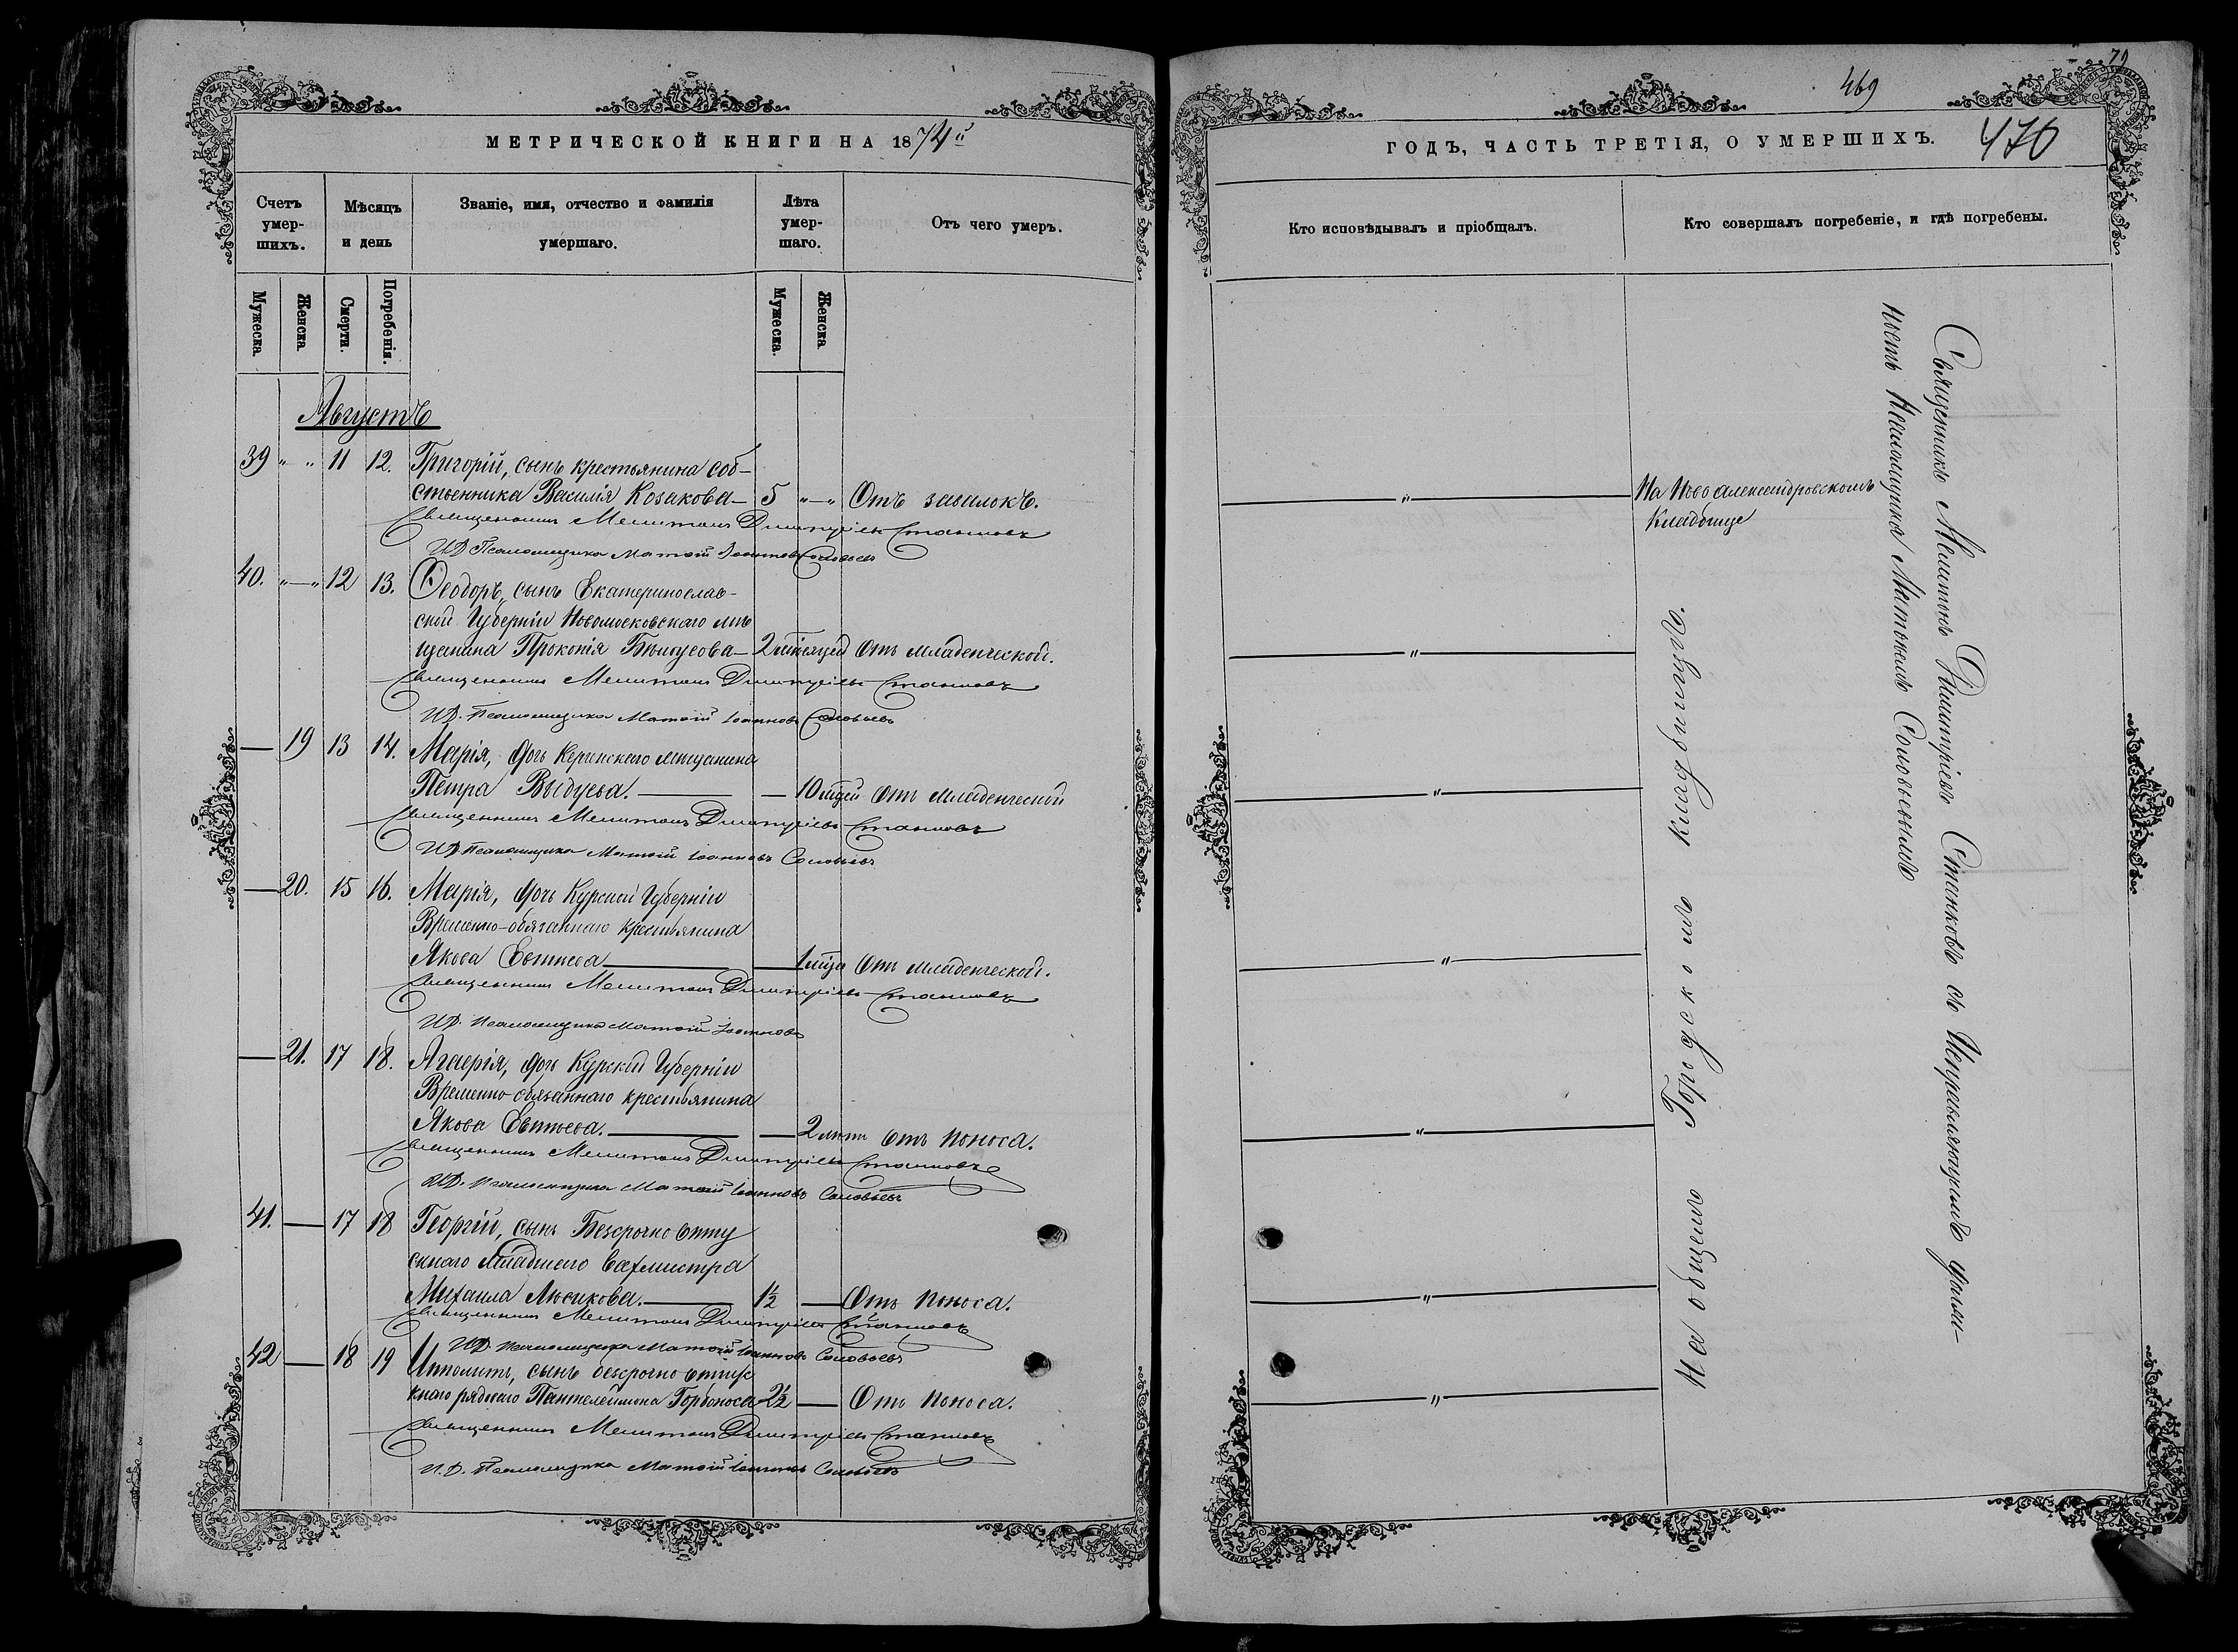 МЕТРИЧЕСКОЙ КНИГИ НА 1874й
Счетъ умер-шихъ.
Мѣсяцъ и день
Званіе, имя, отчество и фамилія умершаго.
Лѣта умер-шаго.
Отъ чего умеръ.
Мужеска.
Женска.
Смерти.
Погребенія.
Мужеска.
Женска
Августъ
39 " " 11 12. Григорій, сынъ крестьянина соб-
ственника Василія Козакова — 5 "—" Отъ завалокъ.
Священникъ Мелитонъ Димитріевъ Станковъ
И.Д. Псаломщика Матѳій Іоанновъ Соловьевъ
40. "—" 12 13. Ѳеодоръ, сынъ Екатеринослав-
ской Губерніи Новомосковскаго мѣ
щанина Прокопія — 2 мѣсяцей Отъ младенческой.
Священникъ Мелитонъ Димитріевъ Станковъ
И.Д. Псаломщика Матѳій Іоанновъ Соловьевъ
— 19 13 14. Марія, дочь Керченскаго мѣщанина
Петра — — 10 мцей Отъ младенческой
Священникъ Мелитонъ Димитріевъ Станковъ
И.Д. Псаломщика Матѳій Іоанновъ Соловьевъ
— 20. 15 16. Марія, дочь Курской Губерніи
Временно-обязаннаго крестьянина
Якова Евтиева — — 1 мца Отъ младенческой.
Священникъ Мелитонъ Димитріевъ Станковъ
И.Д. Псаломщика Матѳій Іоанновъ
— 21. 17 18. Агаѳія, дочь Курской Губерніи
Временно-обязаннаго крестьянина
Якова Евтиева. — — 2 лѣтъ Отъ поноса.
Священникъ Мелитонъ Димитріевъ Станковъ
И.Д. Псаломщика Матѳій Іоанновъ Соловьевъ
41. — 17 18 Георгій, сынъ Безсрочно отпу
скнаго Младшего Вахмистра
Михаила Лысикова. — 1½ — Отъ поноса.
Священникъ Мелитонъ Димитріевъ Станковъ
И.Д. Псаломщика Матѳій Іоанновъ Соловьевъ
42 — 18 19 Ипполитъ, сынъ безсрочно отпус
кнаго рядоваго Пантелеимона Горбоноса 2½ — Отъ поноса.
Священникъ Мелитонъ Димитріевъ Станковъ
И.Д. Псаломщика Матѳій Іоанновъ Соловьевъ
79
469
470
ГОДЪ, ЧАСТЬ ТРЕТІЯ, О УМЕРШИХЪ.
Кто исповѣдывалъ и пріобщалъ.
Кто совершалъ погребеніе, и гдѣ погребены.
На Ново Александровскомъ
Кладбище
На общемъ Городскомъ кладбищѣ.
Священникъ Мелитонъ Димитріевъ Станковъ съ Исправляющимъ долж-
ность Псаломщика Матѳіемъ Соловьевымъ